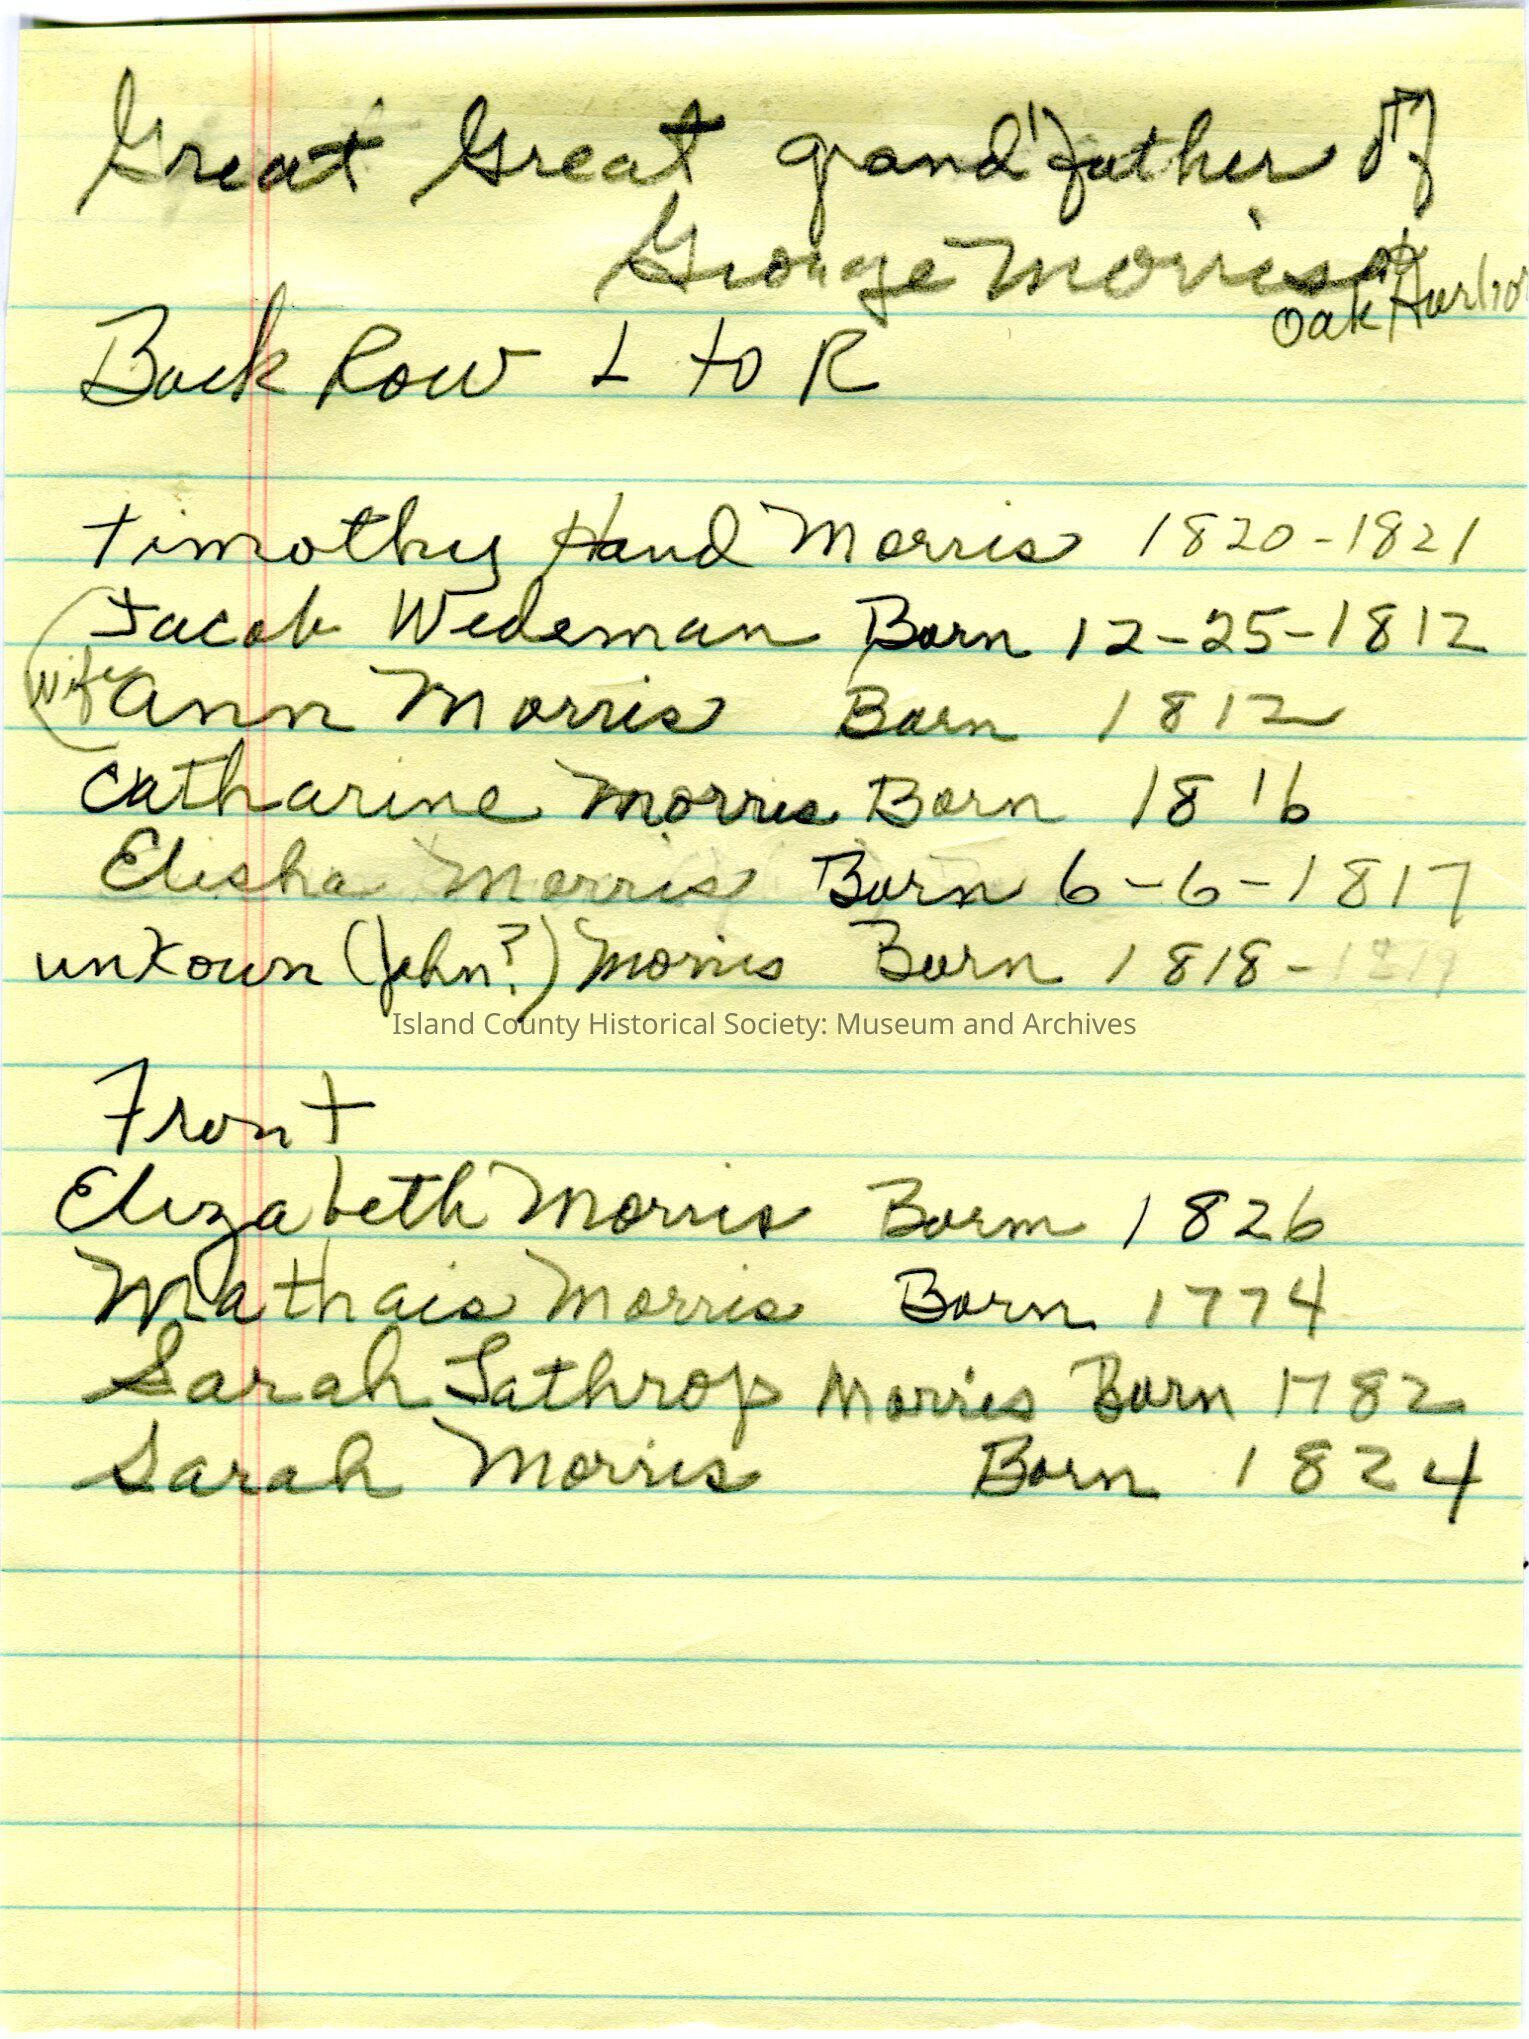 Great Great grandfather of
George Morris of
Oak Harbor
Back Row L to R
Timothy Hand Morris 1820-1821
Jacob Wedeman Born 12-25-1812
(wife Ann Morris Born 1812
Catharine Morris Born 1816
Elisha Morris Born 6-6-1817
unkown (John?) Morris Born 1818-1819
Island County Historical Society: Museum and Archives
Front
Elizabeth Morris Born 1826
Mathais Morris Born 1774
Sarah Lathrop Morris Born 1782
Sarah Morris Born 1824